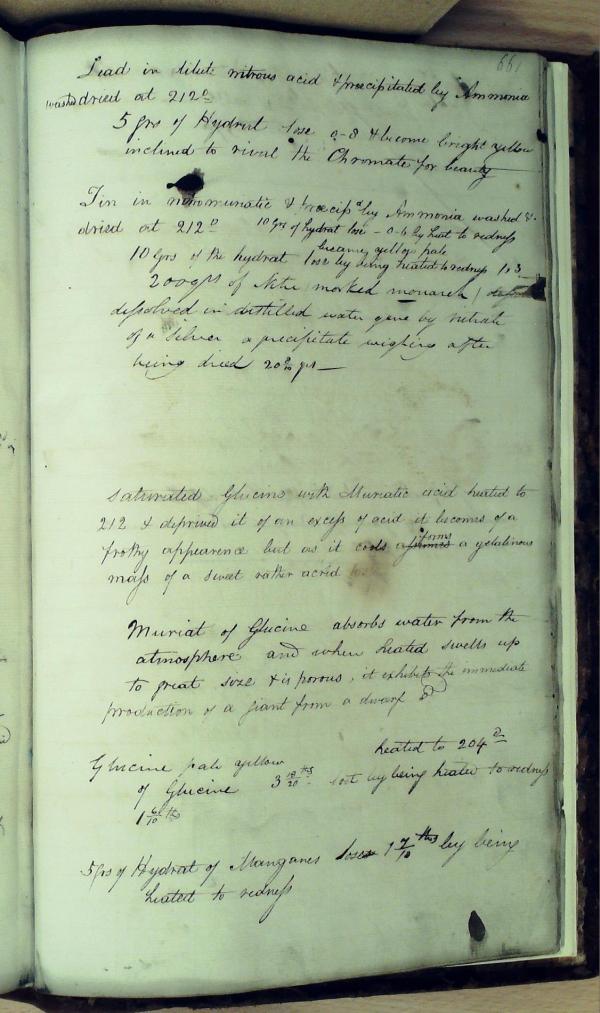 661
Lead in dilute nitrous acid & precipitated by Ammonia
washed dried at 212°
5 grs of Hydrat lose 0-8 & become bright yellow
inclined to rival the Chromate for beauty
Tin in muriatic & precip.d by Ammonia washed &
dried at 212° 10 Grs of hydrat lose - 0-6 by heat to redness
became yellow pale
10 Grs of the hydrat lose by being heated to redness 1.3
200 grs of Nitre marked monarch
dissolved in distilled water gave by nitrate
of Silver a precipitate weighing after
being dried 20 grs
Saturated Glucine with Muriatic acid heated to
212 & deprived it of an excess of acid it becomes of a
frothy appearence but as it cools forms a gelatinous
mass of a sweet rather acrid
Muriat of Glucine absorbs water from the
atmosphere and when heated swells up
to great size & is porous, it exhibits the immediate
production of a giant from a dwarf
heated to 204
Glucine pale yellow
of Glucine 3 18/20 ths lost by being heated to redness
1 6/10 ths
5 grs of Hydrat of Manganes lose 1 7/10 ths by being
heated to redness